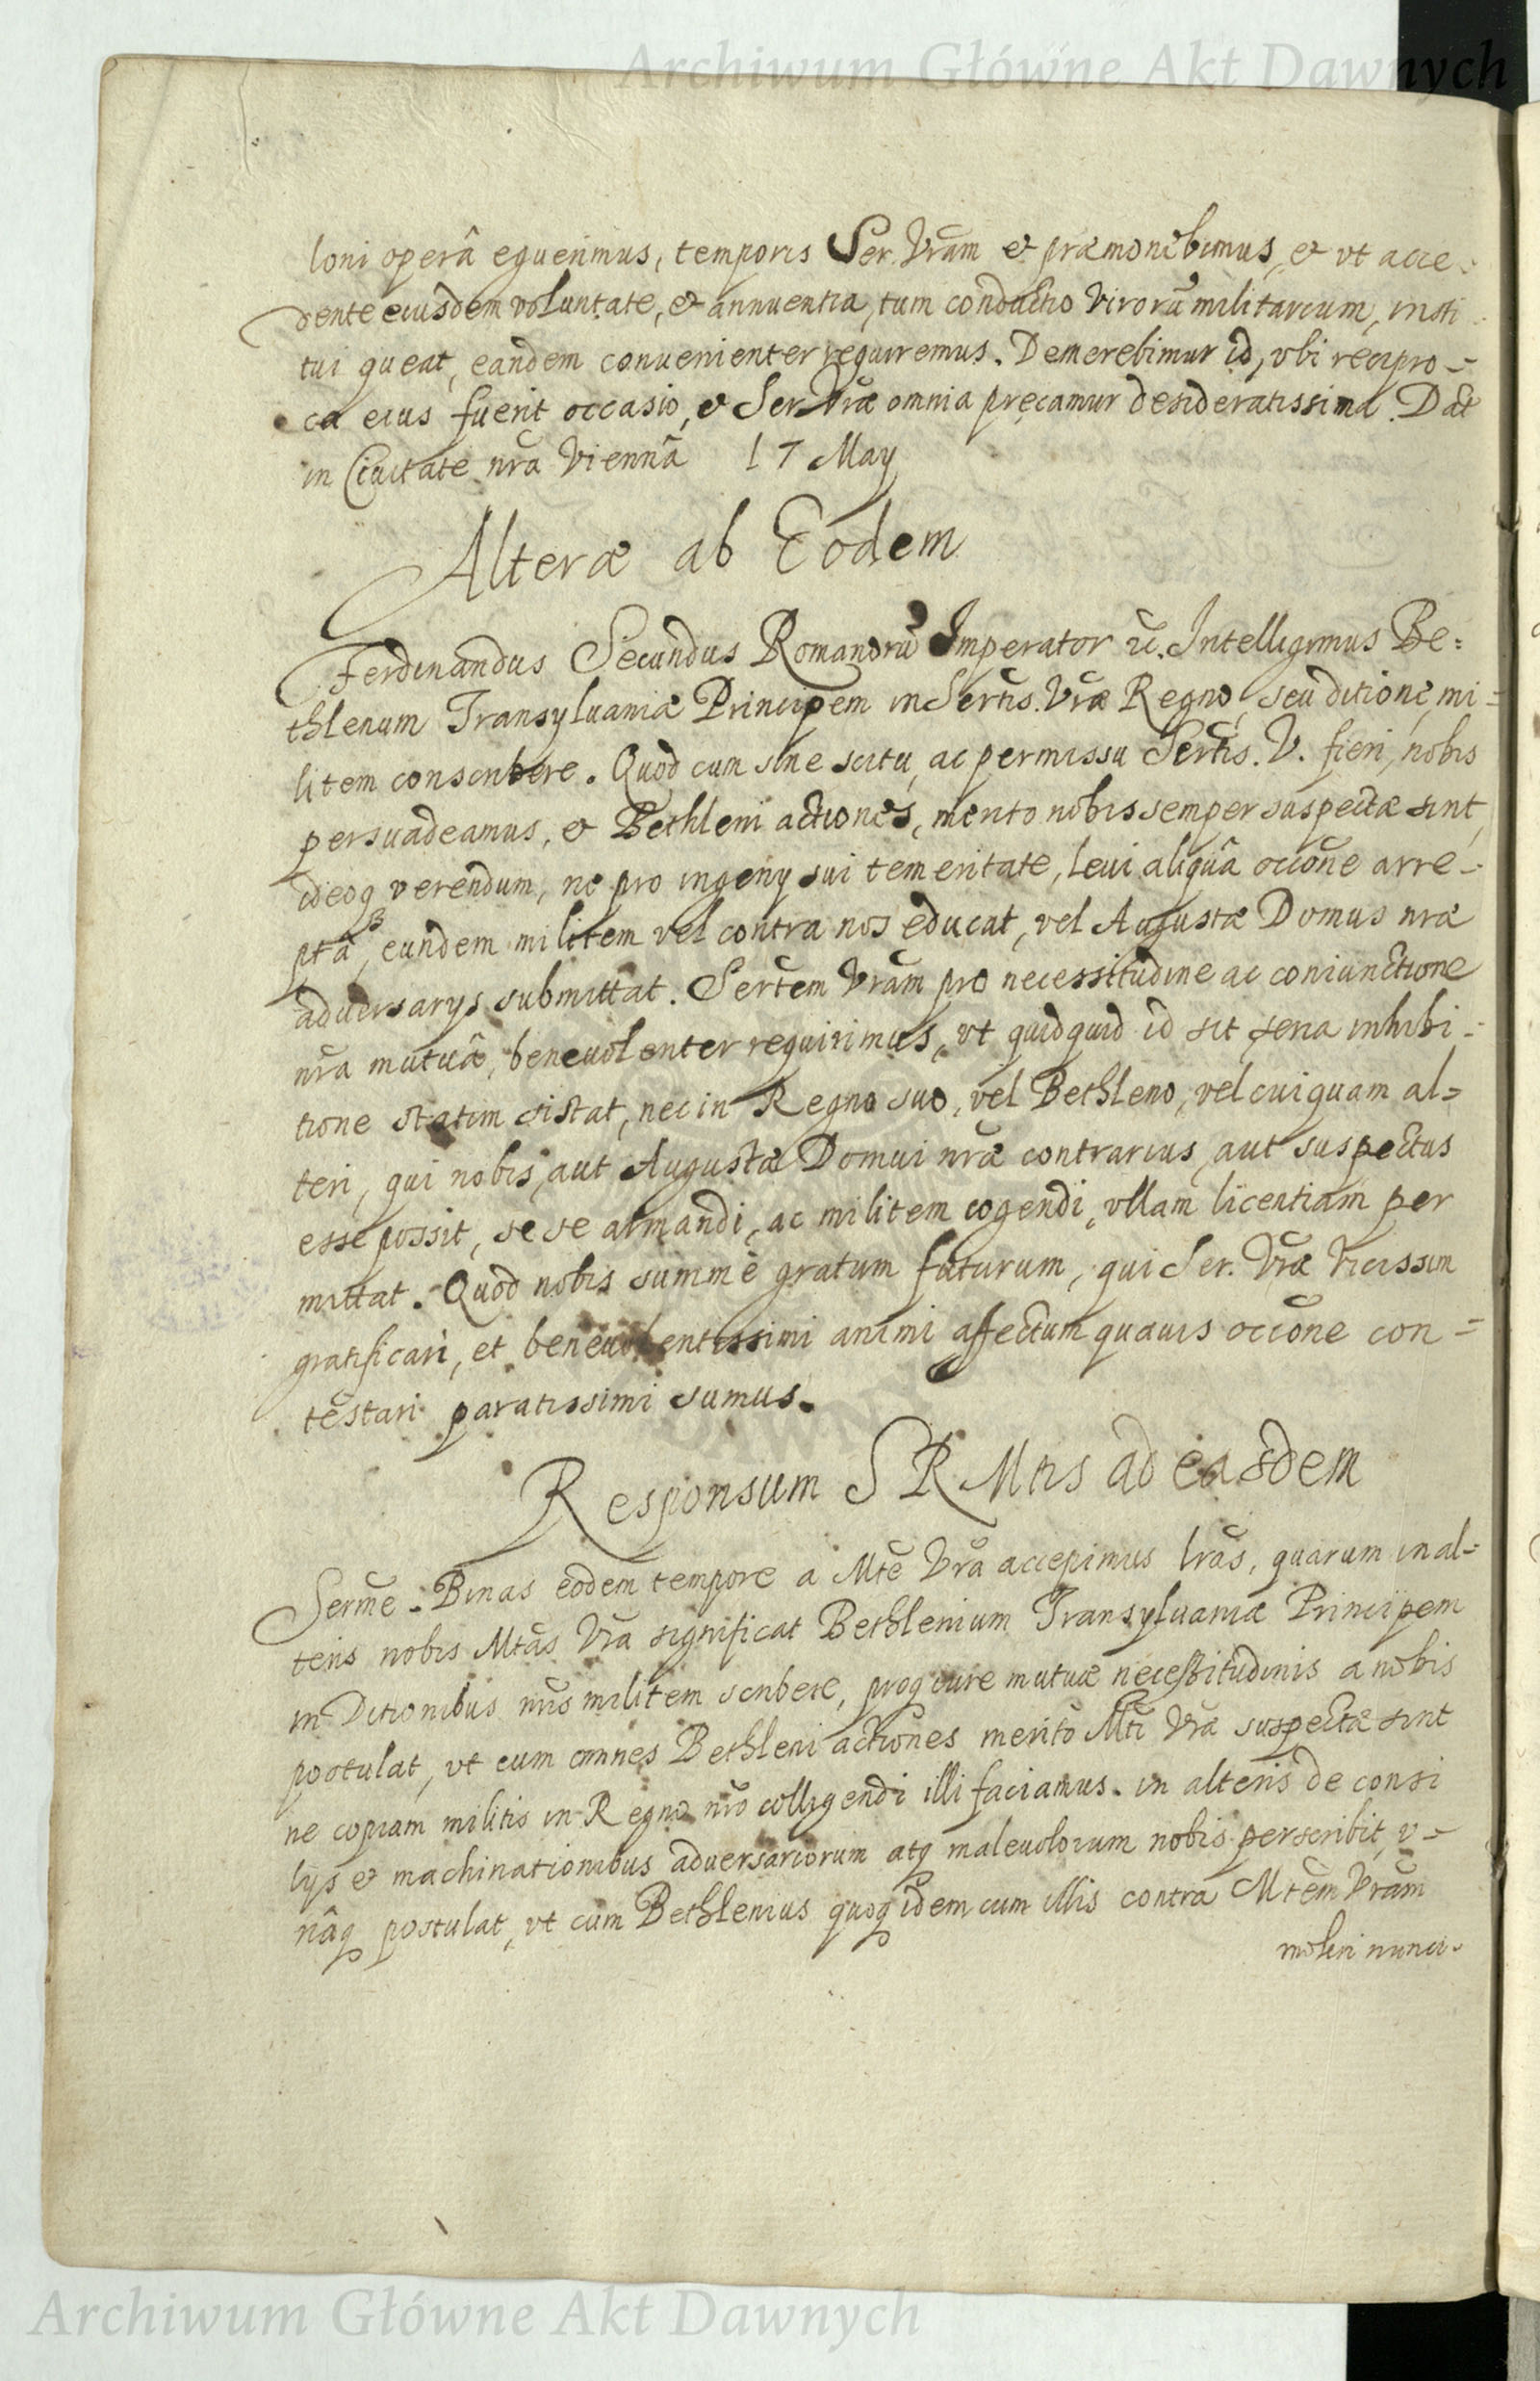 Archiwum Główne Akt Dawnych
loni operâ eguerimus, temporis Ser. Vr̃am et præmonebimus, et vt acce-
dente eiusdem voluntate, et annuentia, tum conductio Virorũ militarium, insti-
tui queat, eandem conuenienter requiremus. Demerebimur id, vbi recipro-
ca eius fuerit occasio, et Ser. Vr̃æ omnia precamur desideratissima. Dat̃
in Ciuitate nr̃a Viennâ 17 May
Alteræ ab Eodem
Ferdinandus Secundus Romanorũ Imperator &c. Intelligimus Be=
thlenum Transyluaniæ Principem in Sertis. Vr̃æ Regno, seu ditione, mi=
litem conscribere. Quod cum sine scitu, ac permissu Sertis. V. fieri, nobis
persuadeamus, et Bethleni actiones, merito nobis semper suspectæ sint,
ideoq verendum, ne pro ingeny sui temeritate, leui aliquâ occõne arre-
ptâ, eundem militem vel contra nos educat, vel Augustæ Domus nr̃æ
aduersarys submittat. Sertem Vr̃am pro necessitudine ac coniunctione
nr̃a mutuâ, beneuolenter requirimus, vt quidquid id sit seria inhibi-
tione statim sistat, nec in Regno suo, vel Bethleno, vel cuiquam al=
teri, qui nobis, aut Augustæ Domui nr̃æ contrarius, aut suspectus
esse possit, se se armandi, ac militem cogendi, vllam licentiam per
mittat. Quod nobis summè gratum futurum, qui Ser. Vr̃æ vicissim
gratificari, et beneuolentissimi animi affectum quauis occõne con=
testari paratissimi sumus.
Responsum S R Mtis ad easdem
Serme. Binas eodem tempore a Mte Vr̃a accepimus lr̃as, quarum in al=
teris nobis Mtas Vr̃a significat Bethlenium Transyluaniæ Principem
in Ditionibus nr̃is militem scribere, proq iure mutuæ necessitudinis a nobis
postulat, vt cum omnes Bethleni actiones meritò Mti Vr̃æ suspectæ sint
ne copiam militis in Regno nr̃o colligendi illi faciamus. in alteris de consi
lijs et machinationibus aduersariorum atq maleuolorum nobis perscribit, v-
nâq postulat, vt cum Bethlenius quoq idem cum illis contra Mtem Vr̃am
moliri nunci-
Archiwum Główne Akt Dawnych